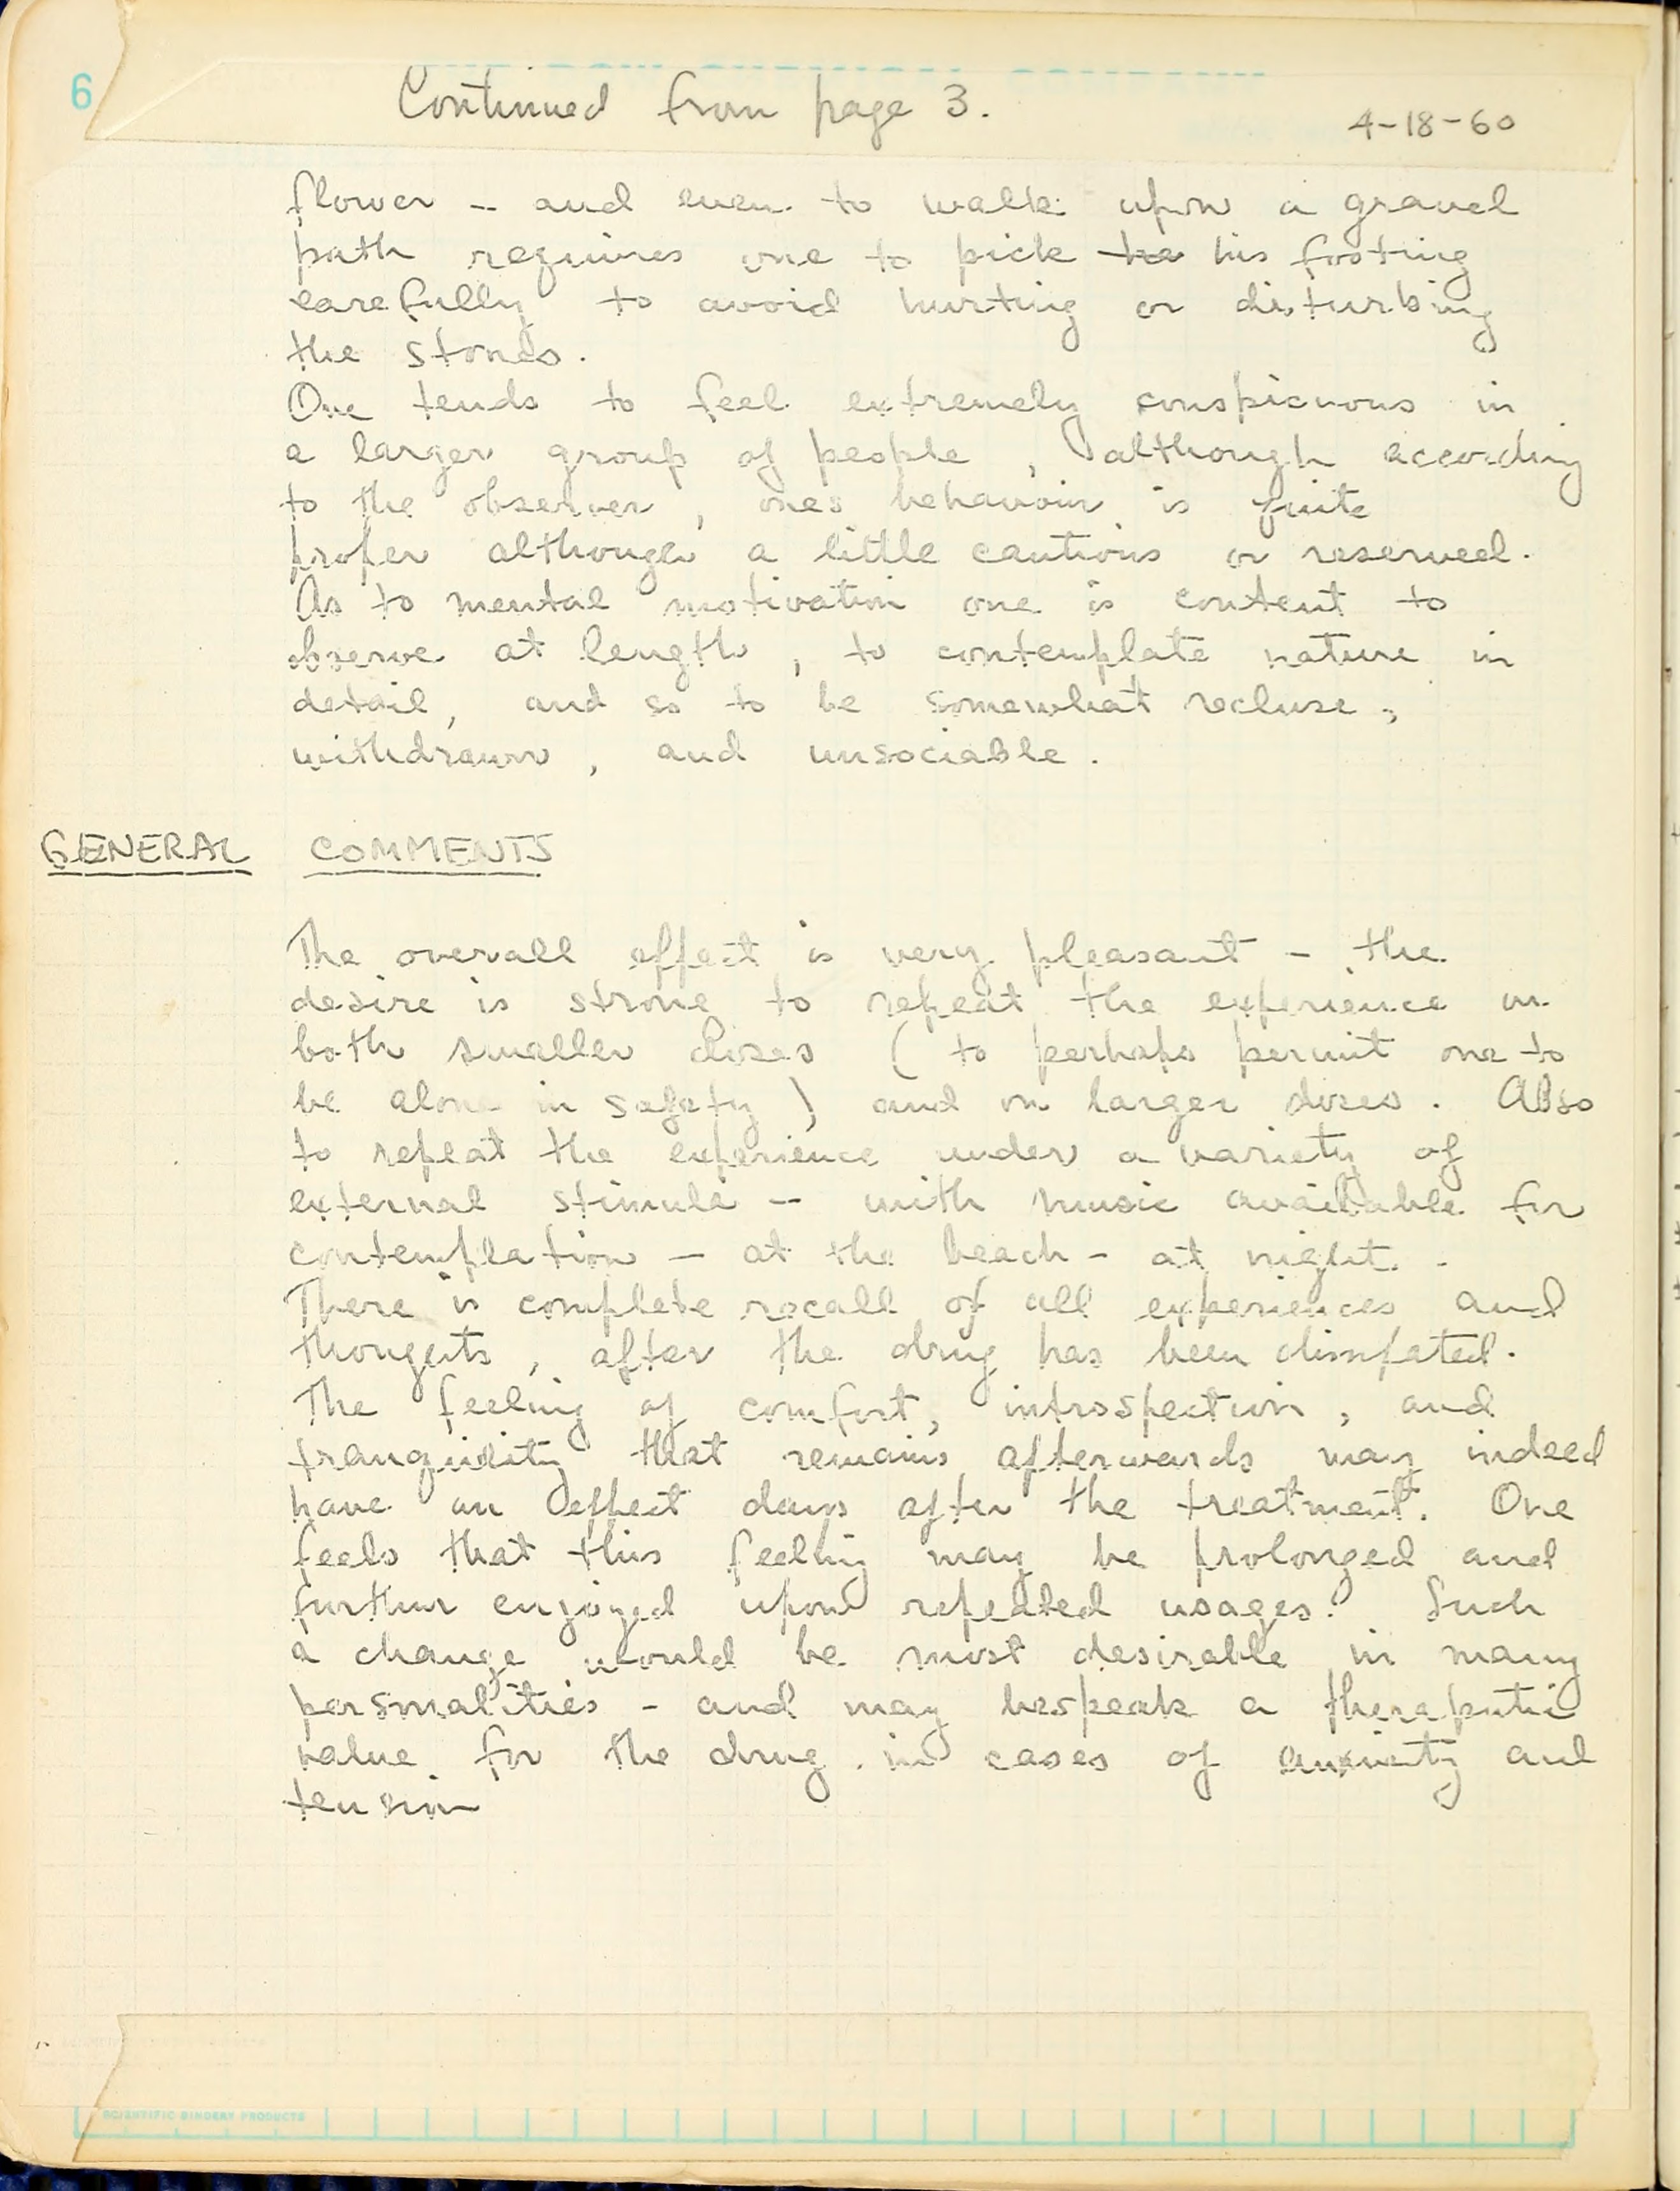 6
Continued from page 3.
4-18-60
flower -- and even to walk upon a gravel
path requires one to pick the his footing
carefully to avoid hurting or disturbing
the stones.
One tends to feel extremely conspicuous in
a larger group of people, although according
to the observer, ones behavoir is quite
proper although a little cautious or reserved.
As to mental motivation one is content to
observe at length, to contemplate nature in
detail, and so to be somewhat recluse,
withdrawn, and unsociable.
GENERAL COMMENTS
The overall effect is very pleasant - the
desire is strong to repeat the experience on
both smaller doses (to perhaps permit one to
be alone in safety) and on larger doses. Also
to repeat the experience under a variety of
external stimula -- with music available for
contemplation - at the beach - at night.
There is complete recall of all experiences and
thoughts, after the drug has been dissipated.
The feeling of comfort, introspection, and
tranquility that remains afterwards may indeed
have an effect days after the treatment. One
feels that this feeling may be prolonged and
further enjoyed upon repeated usages. Such
a change would be most desirable in many
personalities - and may bespeak a theraputic
value for the drug in cases of anxiety and
tension
SCIENTIFIC BINDERY PRODUCTS